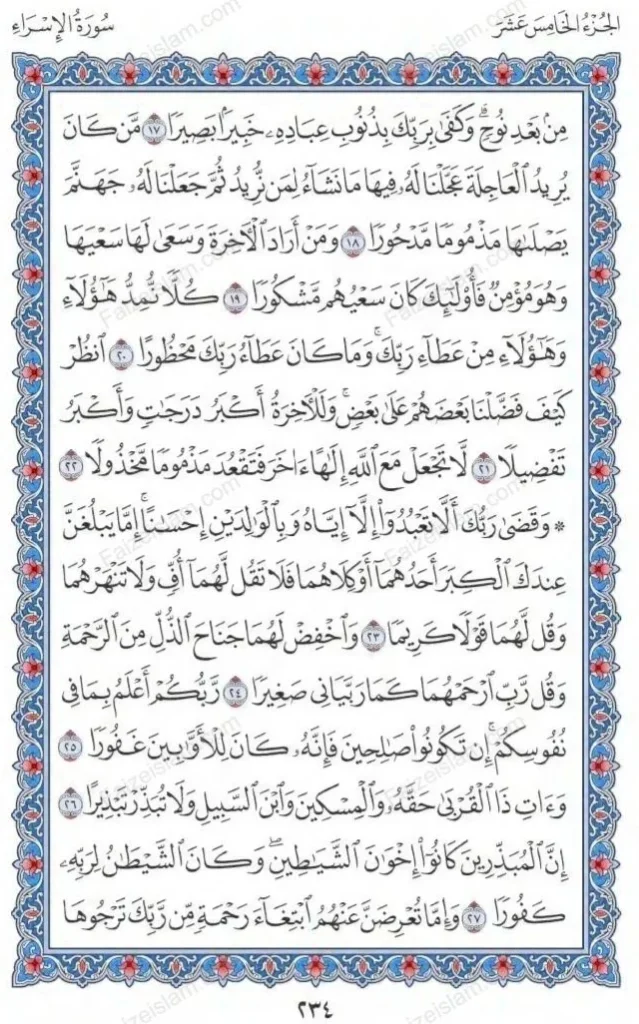 الجزء الخامس عشر
سورة الإسراء
مِنۢ بَعْدِ نُوحٍۗ وَكَفَىٰ بِرَبِّكَ بِذُنُوبِ عِبَادِهِۦ خَبِيرَۢا بَصِيرًا ١٧ مَّن كَانَ
يُرِيدُ ٱلْعَاجِلَةَ عَجَّلْنَا لَهُۥ فِيهَا مَا نَشَآءُ لِمَن نُّرِيدُ ثُمَّ جَعَلْنَا لَهُۥ جَهَنَّمَ
يَصْلَىٰهَا مَذْمُومًا مَّدْحُورًا ١٨ وَمَنْ أَرَادَ ٱلْأَخِرَةَ وَسَعَىٰ لَهَا سَعْيَهَا
وَهُوَ مُؤْمِنٌ فَأُو۟لَـٰٓئِكَ كَانَ سَعْيُهُم مَّشْكُورًا ١٩ كُلًّا نُّمِدُّ هَـٰٓؤُلَآءِ
وَهَـٰٓؤُلَآءِ مِنْ عَطَآءِ رَبِّكَۚ وَمَا كَانَ عَطَآءُ رَبِّكَ مَحْظُورًا ٢٠ ٱنظُرْ
كَيْفَ فَضَّلْنَا بَعْضَهُمْ عَلَىٰ بَعْضٍۚ وَلَلْأَخِرَةُ أَكْبَرُ دَرَجَـٰتٍ وَأَكْبَرُ
تَفْضِيلًا ٢١ لَّا تَجْعَلْ مَعَ ٱللَّهِ إِلَـٰهًا ءَاخَرَ فَتَقْعُدَ مَذْمُومًا مَّخْذُولًا ٢٢
* وَقَضَىٰ رَبُّكَ أَلَّا تَعْبُدُوٓا۟ إِلَّآ إِيَّاهُ وَبِٱلْوَٰلِدَيْنِ إِحْسَـٰنًاۚ إِمَّا يَبْلُغَنَّ
عِندَكَ ٱلْكِبَرَ أَحَدُهُمَآ أَوْ كِلَاهُمَا فَلَا تَقُل لَّهُمَآ أُفٍّ وَلَا تَنْهَرْهُمَا
وَقُل لَّهُمَا قَوْلًا كَرِيمًا ٢٣ وَٱخْفِضْ لَهُمَا جَنَاحَ ٱلذُّلِّ مِنَ ٱلرَّحْمَةِ
وَقُل رَّبِّ ٱرْحَمْهُمَا كَمَا رَبَّيَانِى صَغِيرًا ٢٤ رَّبُّكُمْ أَعْلَمُ بِمَا فِى
نُفُوسِكُمْۚ إِن تَكُونُوا۟ صَـٰلِحِينَ فَإِنَّهُۥ كَانَ لِلْأَوَّٰبِينَ غَفُورًا ٢٥
وَءَاتِ ذَا ٱلْقُرْبَىٰ حَقَّهُۥ وَٱلْمِسْكِينَ وَٱبْنَ ٱلسَّبِيلِ وَلَا تُبَذِّرْ تَبْذِيرًا ٢٦
إِنَّ ٱلْمُبَذِّرِينَ كَانُوٓا۟ إِخْوَٰنَ ٱلشَّيَـٰطِينِۖ وَكَانَ ٱلشَّيْطَـٰنُ لِرَبِّهِۦ
كَفُورًا ٢٧ وَإِمَّا تُعْرِضَنَّ عَنْهُمُ ٱبْتِغَآءَ رَحْمَةٍ مِّن رَّبِّكَ تَرْجُوهَا
٢٣٤
Faizeislam.com